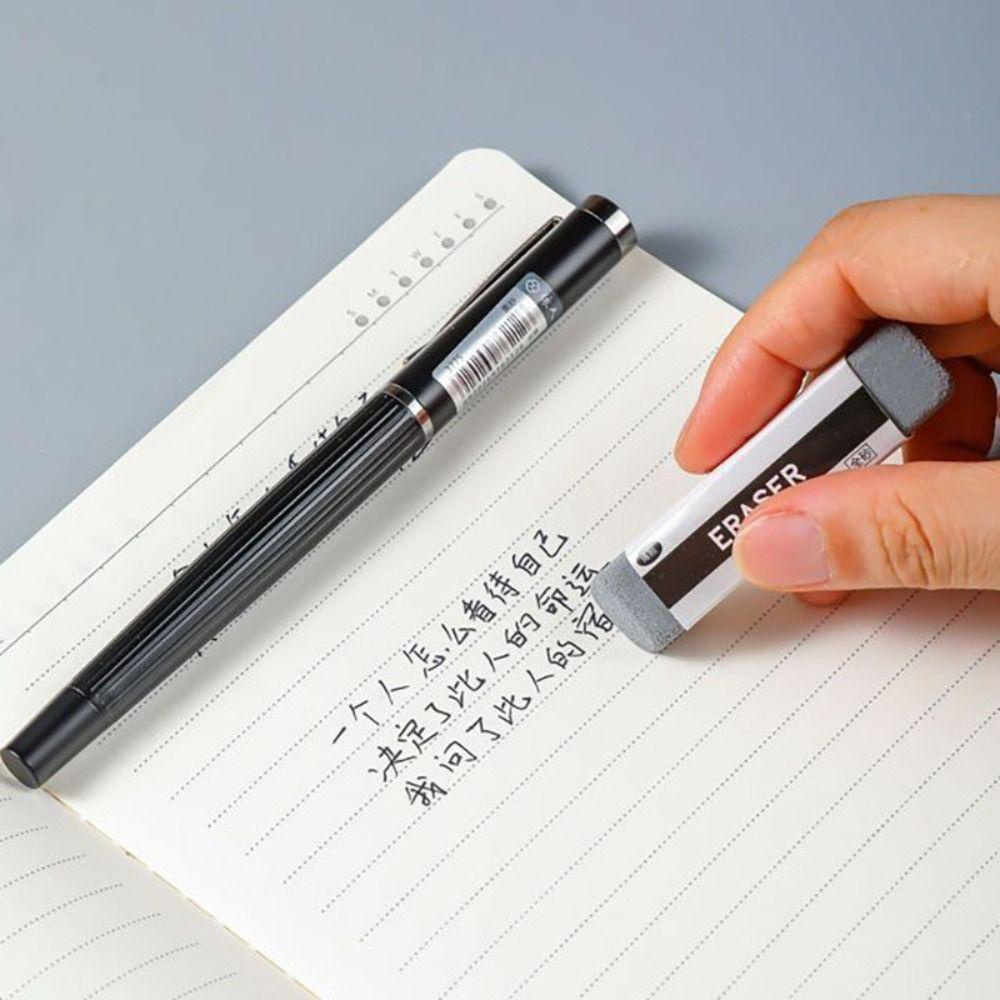 S M T W T F S
一个人怎么看待自己
决定了此人的命运
我问了比人的宿
ERASER